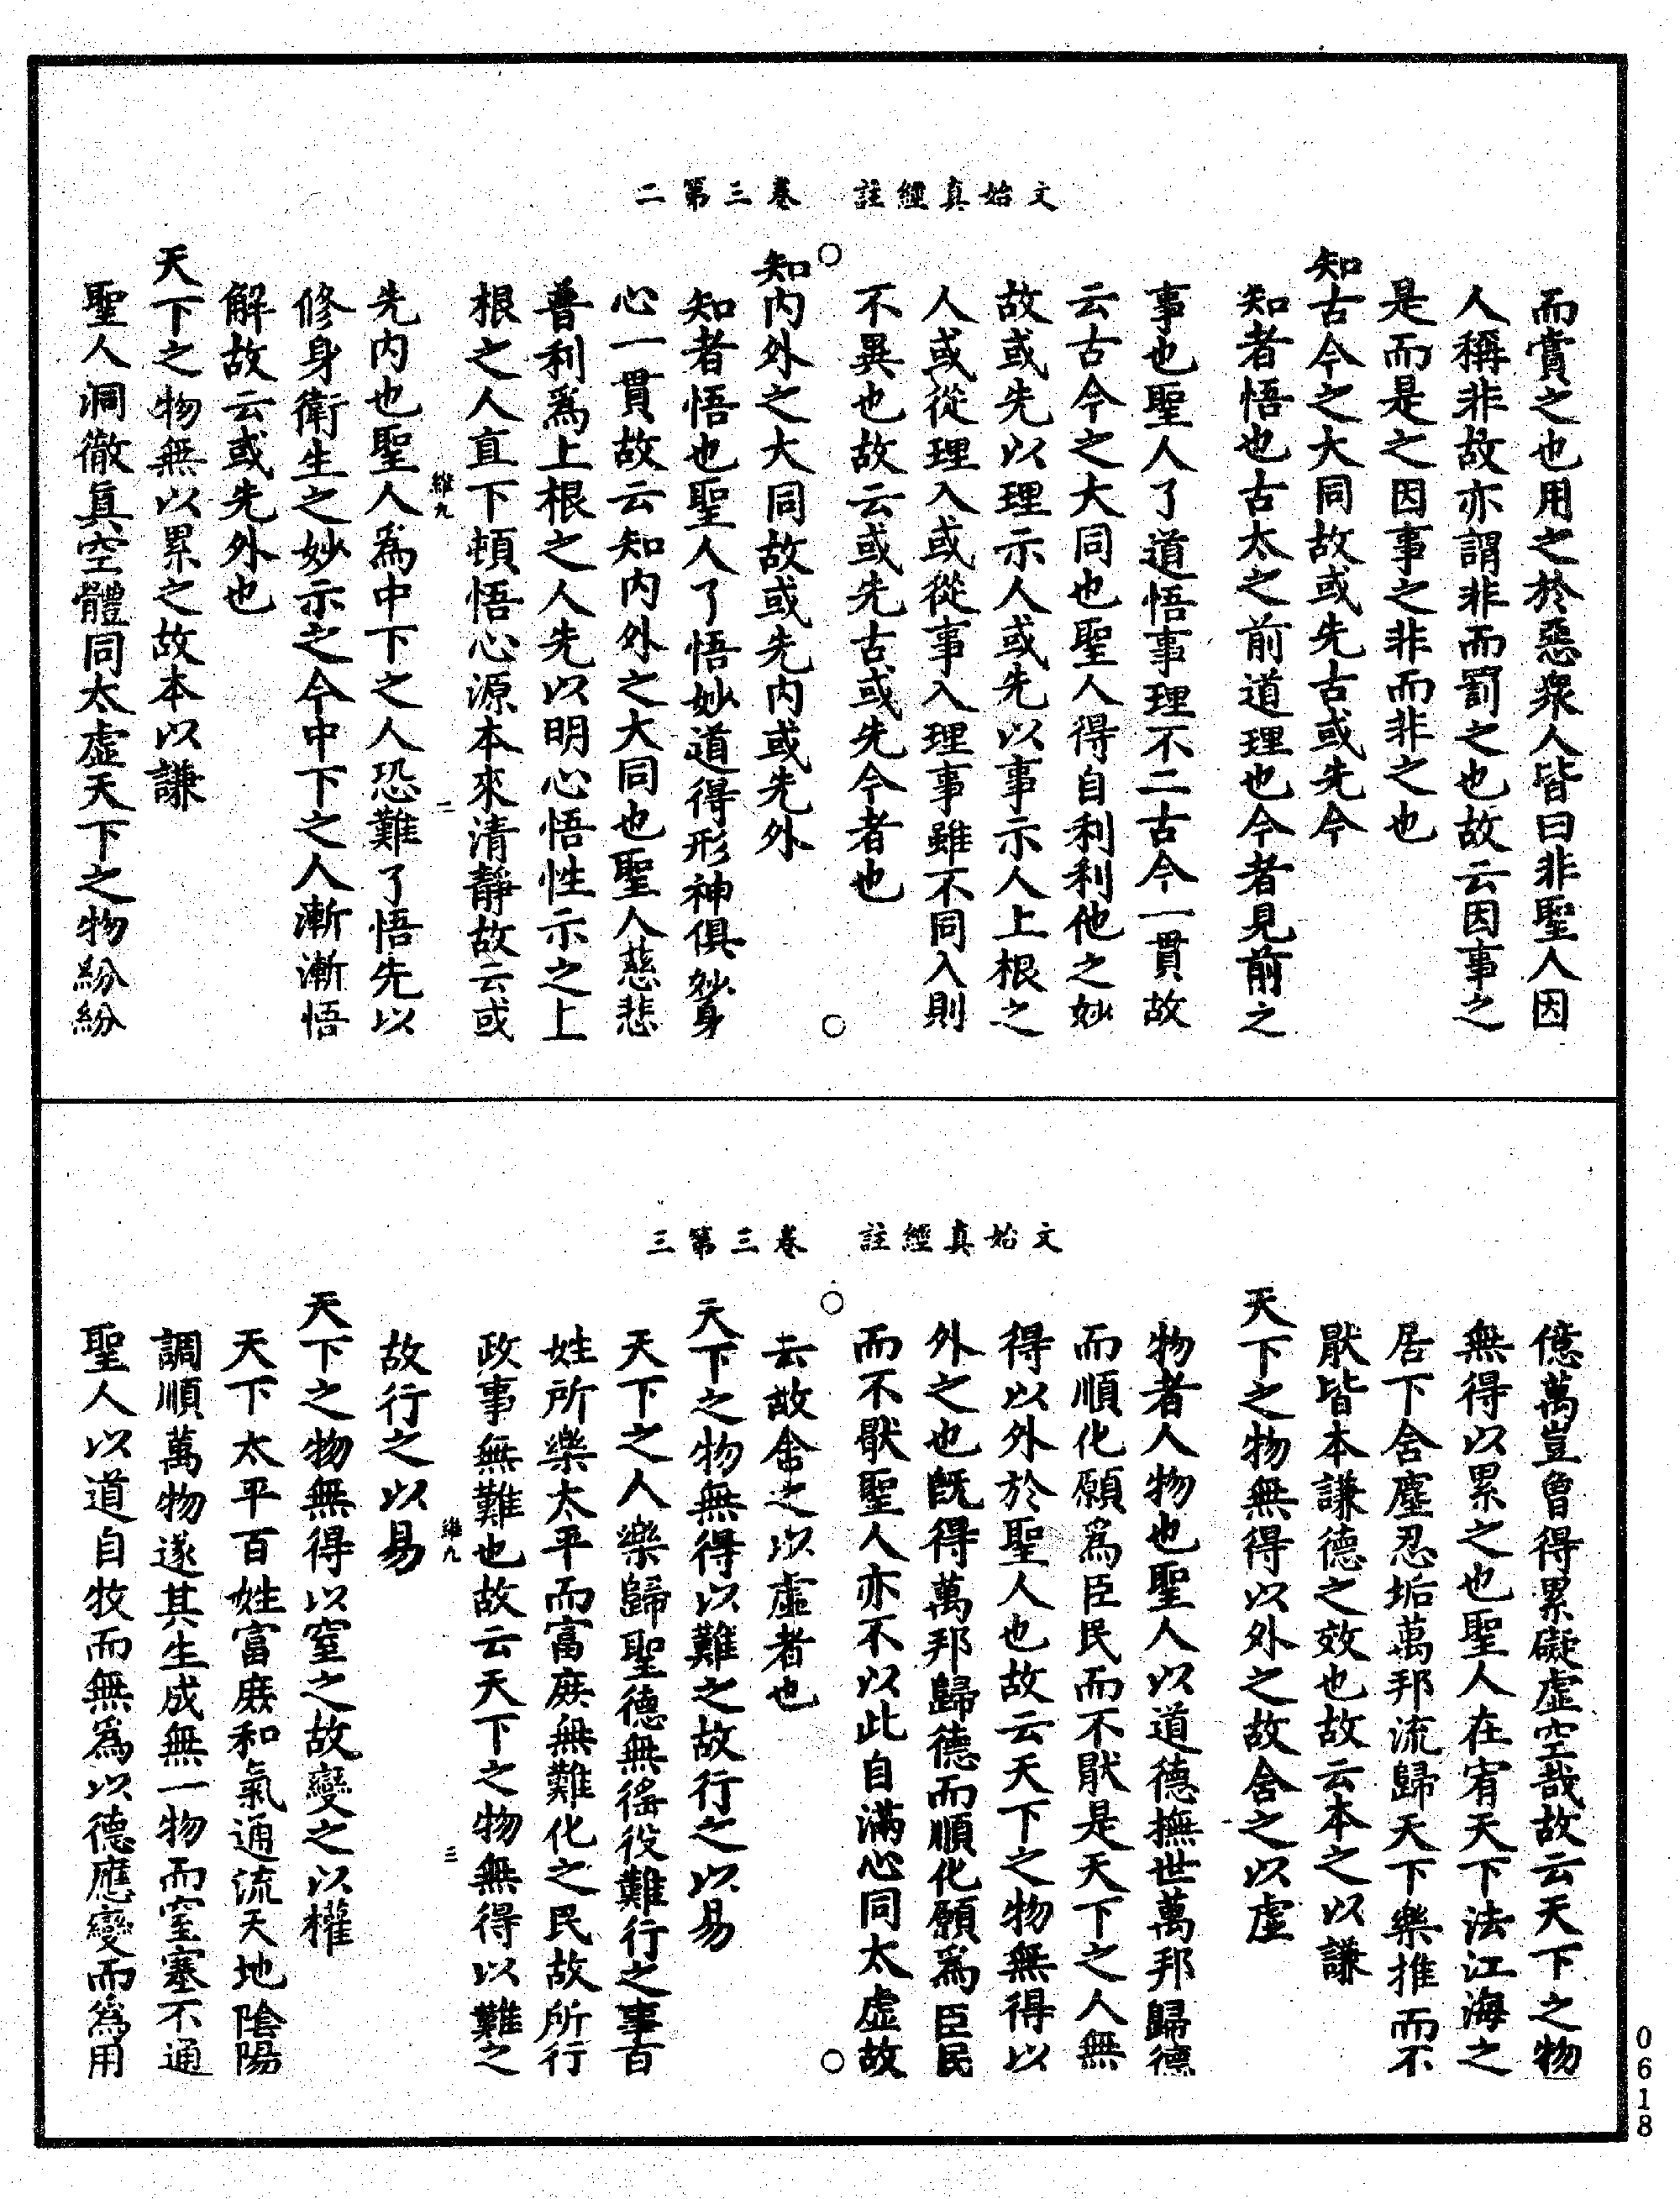 文始真經註　卷三第二
而賞之也用之於惡衆人皆曰非聖人因
人稱非故亦謂非而罰之也故云因事之
是而是之因事之非而非之也
知古今之大同故或先古或先今
知者悟也古太之前道理也今者見前之
事也聖人了道悟事理不二古今一貫故
云古今之大同也聖人得自利利他之妙
故或先以理示人或先以事示人上根之
人或從理入或從事入理事雖不同入則
不異也故云或先古或先今者也
知内外之大同故或先内或先外
知者悟也聖人了悟妙道得形神俱妙身
心一貫故云知内外之大同也聖人慈悲
普利爲上根之人先以明心悟性示之上
根之人直下頓悟心源本來清靜故云或
維九
二
先内也聖人爲中下之人恐難了悟先以
修身衛生之妙示之令中下之人漸漸悟
解故云或先外也
天下之物無以累之故本以謙
聖人洞徹真空體同太虛天下之物紛紛
文始真經註　卷三第三
億萬豈曾得累礙虛空哉故云天下之物
無得以累之也聖人在宥天下法江海之
居下含塵忍垢萬邦流歸天下樂推而不
猒皆本謙德之效也故云本之以謙
天下之物無得以外之故舍之以虛
物者人物也聖人以道德撫世萬邦歸德
而順化願爲臣民而不猒是天下之人無
得以外於聖人也故云天下之物無得以
外之也旣得萬邦歸德而順化願爲臣民
而不猒聖人亦不以此自滿心同太虛故
云故舍之以虛者也
天下之物無得以難之故行之以易
天下之人樂歸聖德無徭役難行之事百
姓所樂太平而富庶無難化之民故所行
政事無難也故云天下之物無得以難之
維九
三
故行之以易
天下之物無得以窒之故變之以權
天下太平百姓富庶和氣通流天地陰陽
調順萬物遂其生成無一物而窒塞不通
聖人以道自牧而無爲以德應變而爲用
0618